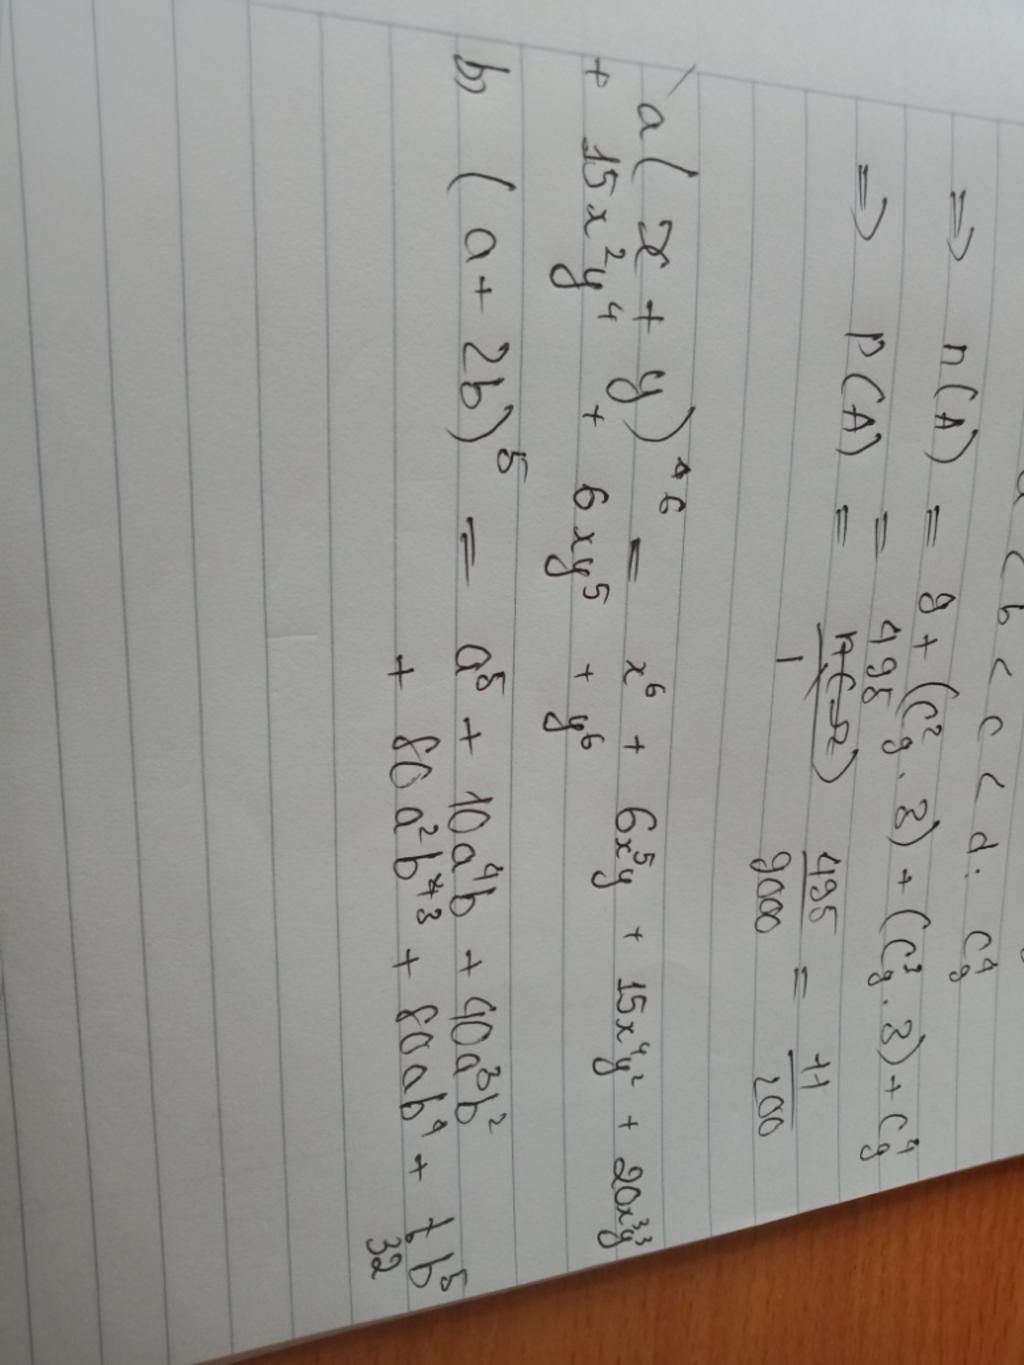 a < b < c < d : C⁴₉
⇒ n(A) = 9 + (C²₉ . 3) + (C³₉ . 3) + C⁴₉
= 495
⇒ P(A) = 495/9000 = 11/200
a( x + y)⁶ = x⁶ + 6x⁵y + 15x⁴y² + 20x³y³
+ 15x²y⁴ + 6xy⁵ + y⁶
b) (a + 2b)⁵ = a⁵ + 10a⁴b + 40a³b²
+ 80a²b³ + 80ab⁴ + 32 b⁵